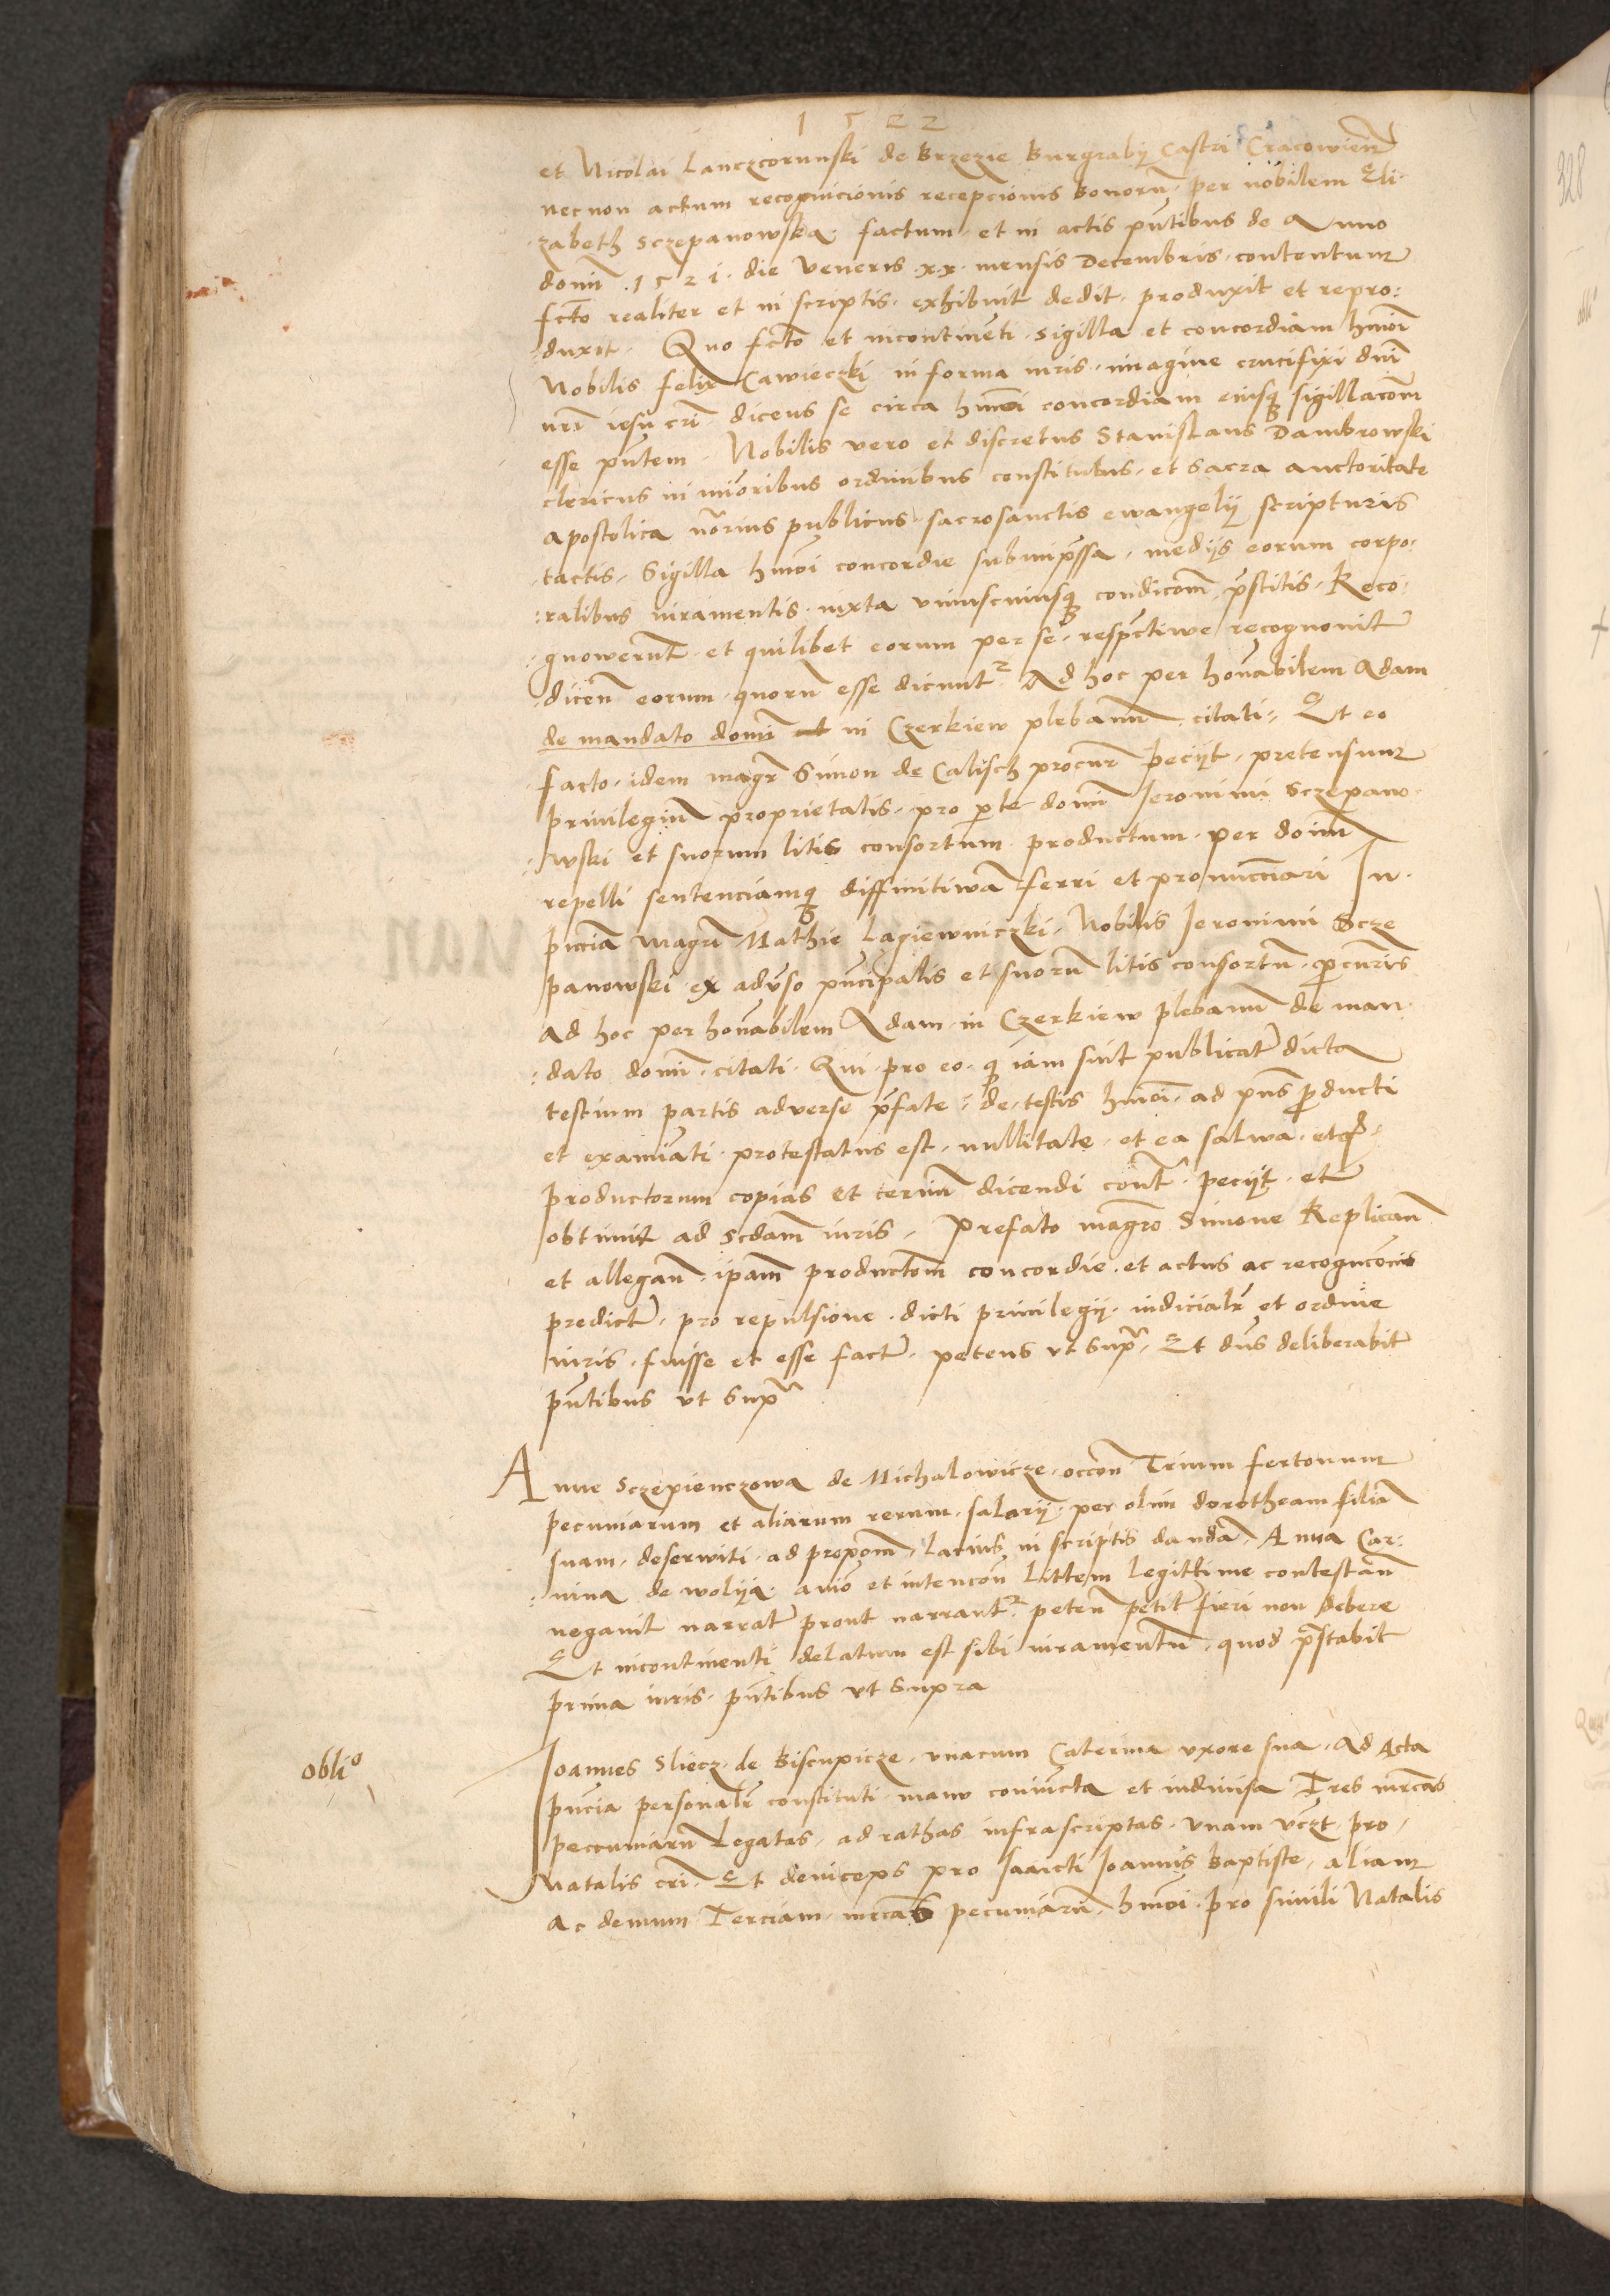 1522
et Nicolai Lanczcorunski de Brzezie Burgrabij Castri Cracowien̄
necnon actum recognicionis recepcionis Bonorū per nobilem Eli-
zabeth Sczepanowska factum et in actis pn̄tibus de Anno
domī 1521 die veneris xx mensis Decembris contentum
fcto realiter et in scriptis exhibuit dedit produxit et repro:
:duxit. Quo fcto et incontinēti sigilla et concordiam hmōi
Nobilis felix Cawieczki in forma iuris imagine crucifixi dnī
nrī iesu crī dicens se circa hmōi concordiam eiusq sigillacōm
esse pn̄tem. Nobilis vero et discretus Stanislaus Dambrowski
clericus in mīoribus ordinibus constitutus et sacra auctoritate
apostolica no̅rius publicus sacrosanctis ewangelij scripturis
tactis, Sigilla hmōi concordie subimp̄ssa, medijs eorum corpo:
:ralibus iuramentis iuxta vniuscuiusq condicōm p̄stitis Reco:
:gnowerunt et quilibet eorum per se respectiwe recognouit
dicen̄ eorum quorū esse dicunt̄ Ad hoc per hon̄abilem Adam
de mandato domī in Czerkiew plebanū citati, Et eo
facto idem mag̅r Simon de Calisch procur̄ peciit pretensum
priuilegiū proprietatis pro p̄te domī Jeronimi Sczepano-
:wski et suorum litis consortum productum per doim̄
repelli sentenciamq diffinitiwā ferri et pronūcciari In
pn̄cia magr̄i Mathie Lagiewniczki Nobilis Jeronimi Scze
panowski ex adv̄so prīcipalis et suorū litis consortū p̄curis
Ad hoc per hon̄abilem Adam in Czerkiew plebanū de man-
:dato domī citati Qui pro eo q iam sint publicat̄ dicta
testium partis adverse p̄fate, de testis hmōi ad pn̄s p̄ducti
et examīati protestatus est nullitate et ea salwa
productorum copias et termī dicendi cont̄ peciit et
obtinuit ad scdam iuris, Prefato magr̄o Simone Replican̄
et allegan̄ ip̄am productōm concordie et actus ac recognicōnis
predict̄ pro repulsione dicti priuilegij iudicialr̄ et ordine
iuris fuisse et esse fact̄ petens vt supra Et dn̄s deliberabit
pn̄tibus vt supra
Anne Sczepienczowa de Michalowicze occōn Trium fertonum
pecuniarum et aliarum rerum salarij per olim dorotheam filiā
suam deserwiti ad prepōm lacius in scriptis dandā Anna Car:
:nina de wolija aniō et intencōn Littem legittime contestan̄
negauit narrat̄ prout narrant̄ peten̄ petit̄ fieri non debere
Et incontinenti delatum est sibi iuramentū quod p̄stabit
prima iuris pn̄tibus vt supra
oblio
Joannes Sliecz de Biscupicze vnacum Caterina vxore sua Ad Acta
pn̄cia personalr̄ constituti manu coniūcta et indiuisa Tres mrcas
peccuniarū Legatas ad rathas infrascriptas vnam vczt pro
Natalis crī Et deinceps pro sancti Joannis baptiste aliam
Ac demum Terciam mrcas pecuniarū hmōi pro simili Natalis
328